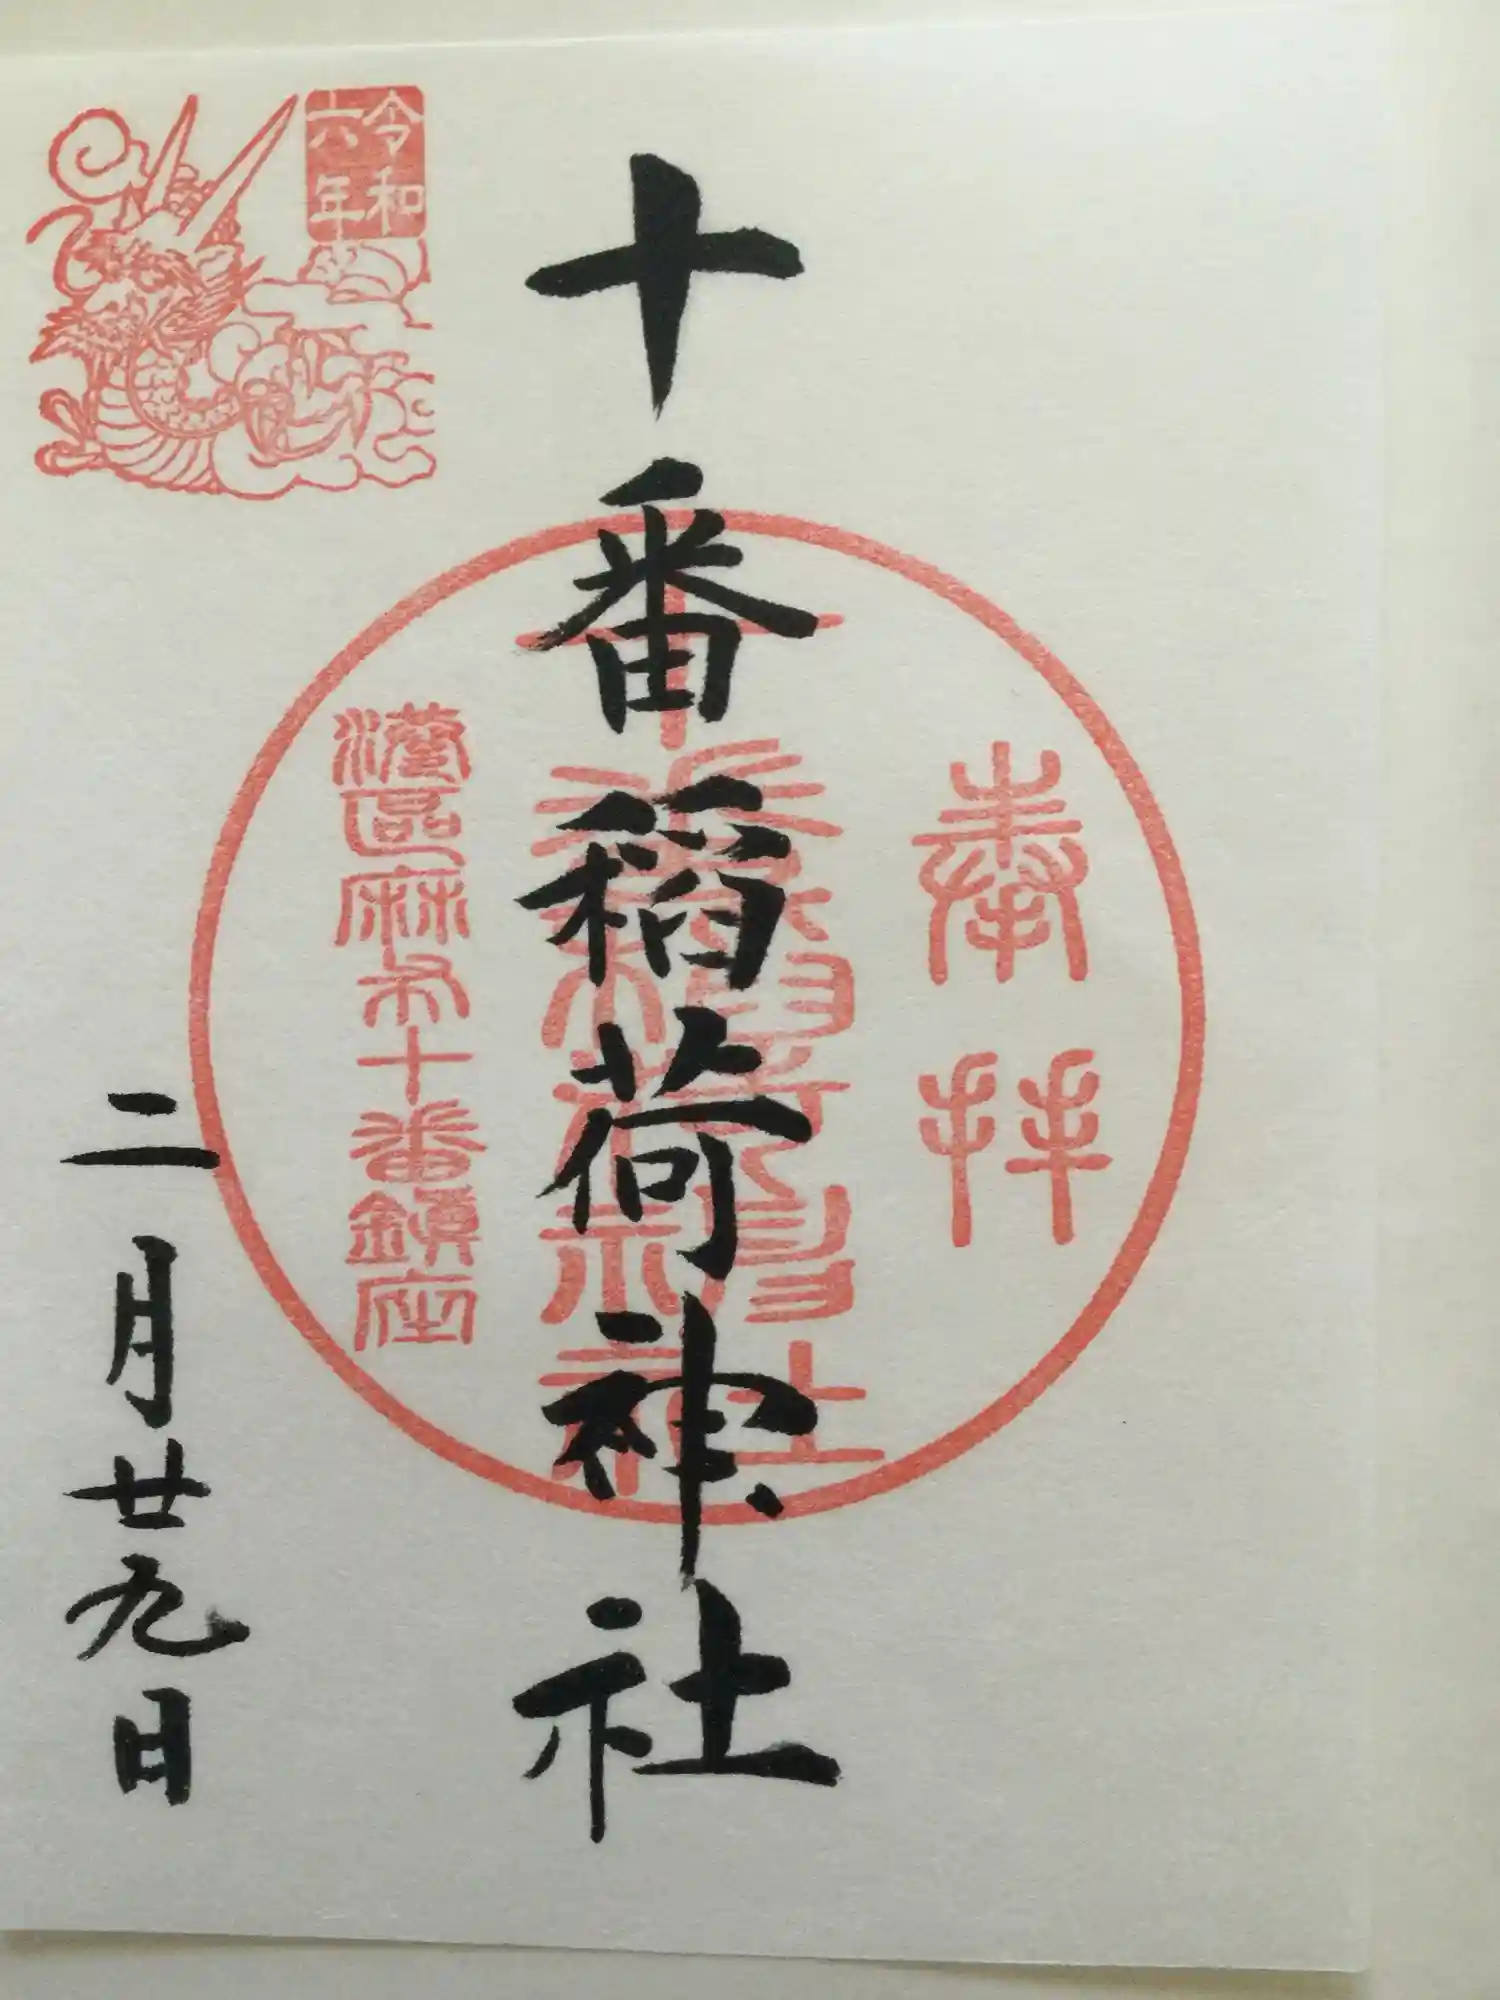 奉拝
十番稲荷神社
十番稲荷神社
港区麻布十番鎮座
令和
六年
二月廿九日